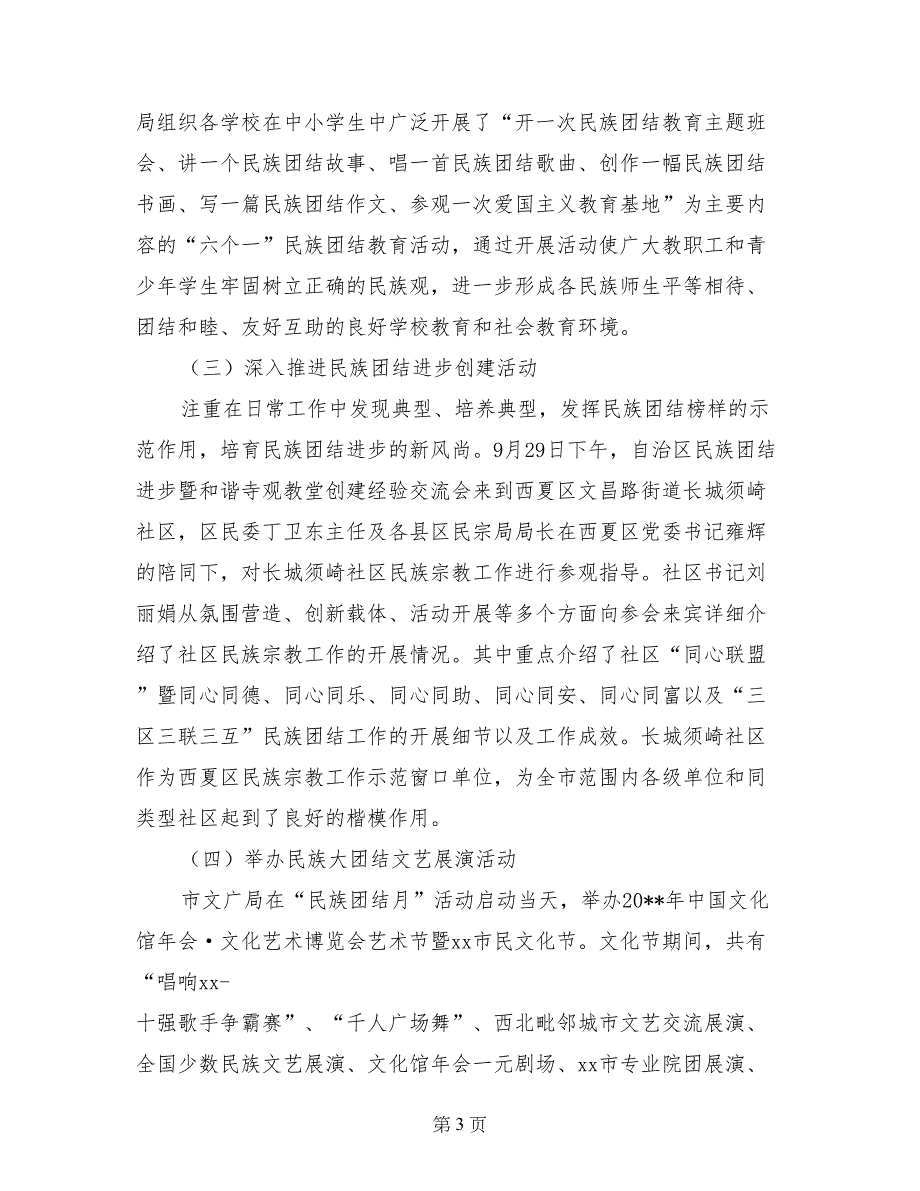 局组织各学校在中小学生中广泛开展了“开一次民族团结教育主题班
会、讲一个民族团结故事、唱一首民族团结歌曲、创作一幅民族团结
书画、写一篇民族团结作文、参观一次爱国主义教育基地”为主要内
容的“六个一”民族团结教育活动，通过开展活动使广大教职工和青
少年学生牢固树立正确的民族观，进一步形成各民族师生平等相待、
团结和睦、友好互助的良好学校教育和社会教育环境。
（三）深入推进民族团结进步创建活动
注重在日常工作中发现典型、培养典型，发挥民族团结榜样的示
范作用，培育民族团结进步的新风尚。9月29日下午，自治区民族团结
进步暨和谐寺观教堂创建经验交流会来到西夏区文昌路街道长城须崎
社区，区民委丁卫东主任及各县区民宗局局长在西夏区党委书记雍辉
的陪同下，对长城须崎社区民族宗教工作进行参观指导。社区书记刘
丽娟从氛围营造、创新载体、活动开展等多个方面向参会来宾详细介
绍了社区民族宗教工作的开展情况。其中重点介绍了社区“同心联盟
”暨同心同德、同心同乐、同心同助、同心同安、同心同富以及“三
区三联三互”民族团结工作的开展细节以及工作成效。长城须崎社区
作为西夏区民族宗教工作示范窗口单位，为全市范围内各级单位和同
类型社区起到了良好的楷模作用。
（四）举办民族大团结文艺展演活动
市文广局在“民族团结月”活动启动当天，举办20**年中国文化
馆年会·文化艺术博览会艺术节暨xx市民文化节。文化节期间，共有
“唱响xx-
十强歌手争霸赛”、“千人广场舞”、西北毗邻城市文艺交流展演、
全国少数民族文艺展演、文化馆年会一元剧场、xx市专业院团展演、
第 3 页